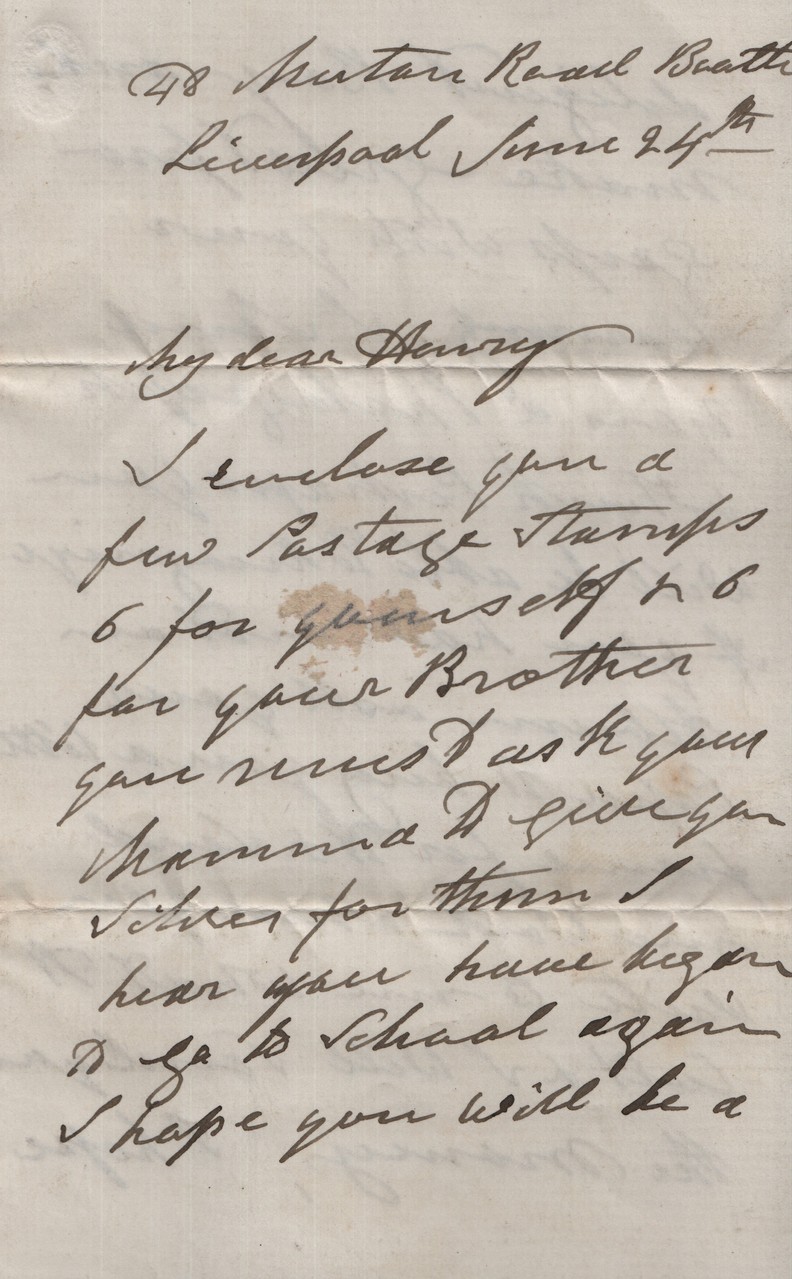 48 Merton Road Bootle
Liverpool June 24th
My dear Henry
I enclose you a
few Postage Stamps
6 for yourself & 6
for your Brother
you must ask your
Mamma to give you
Silver for them I
hear you have began
to go to School again
I hope you will be a